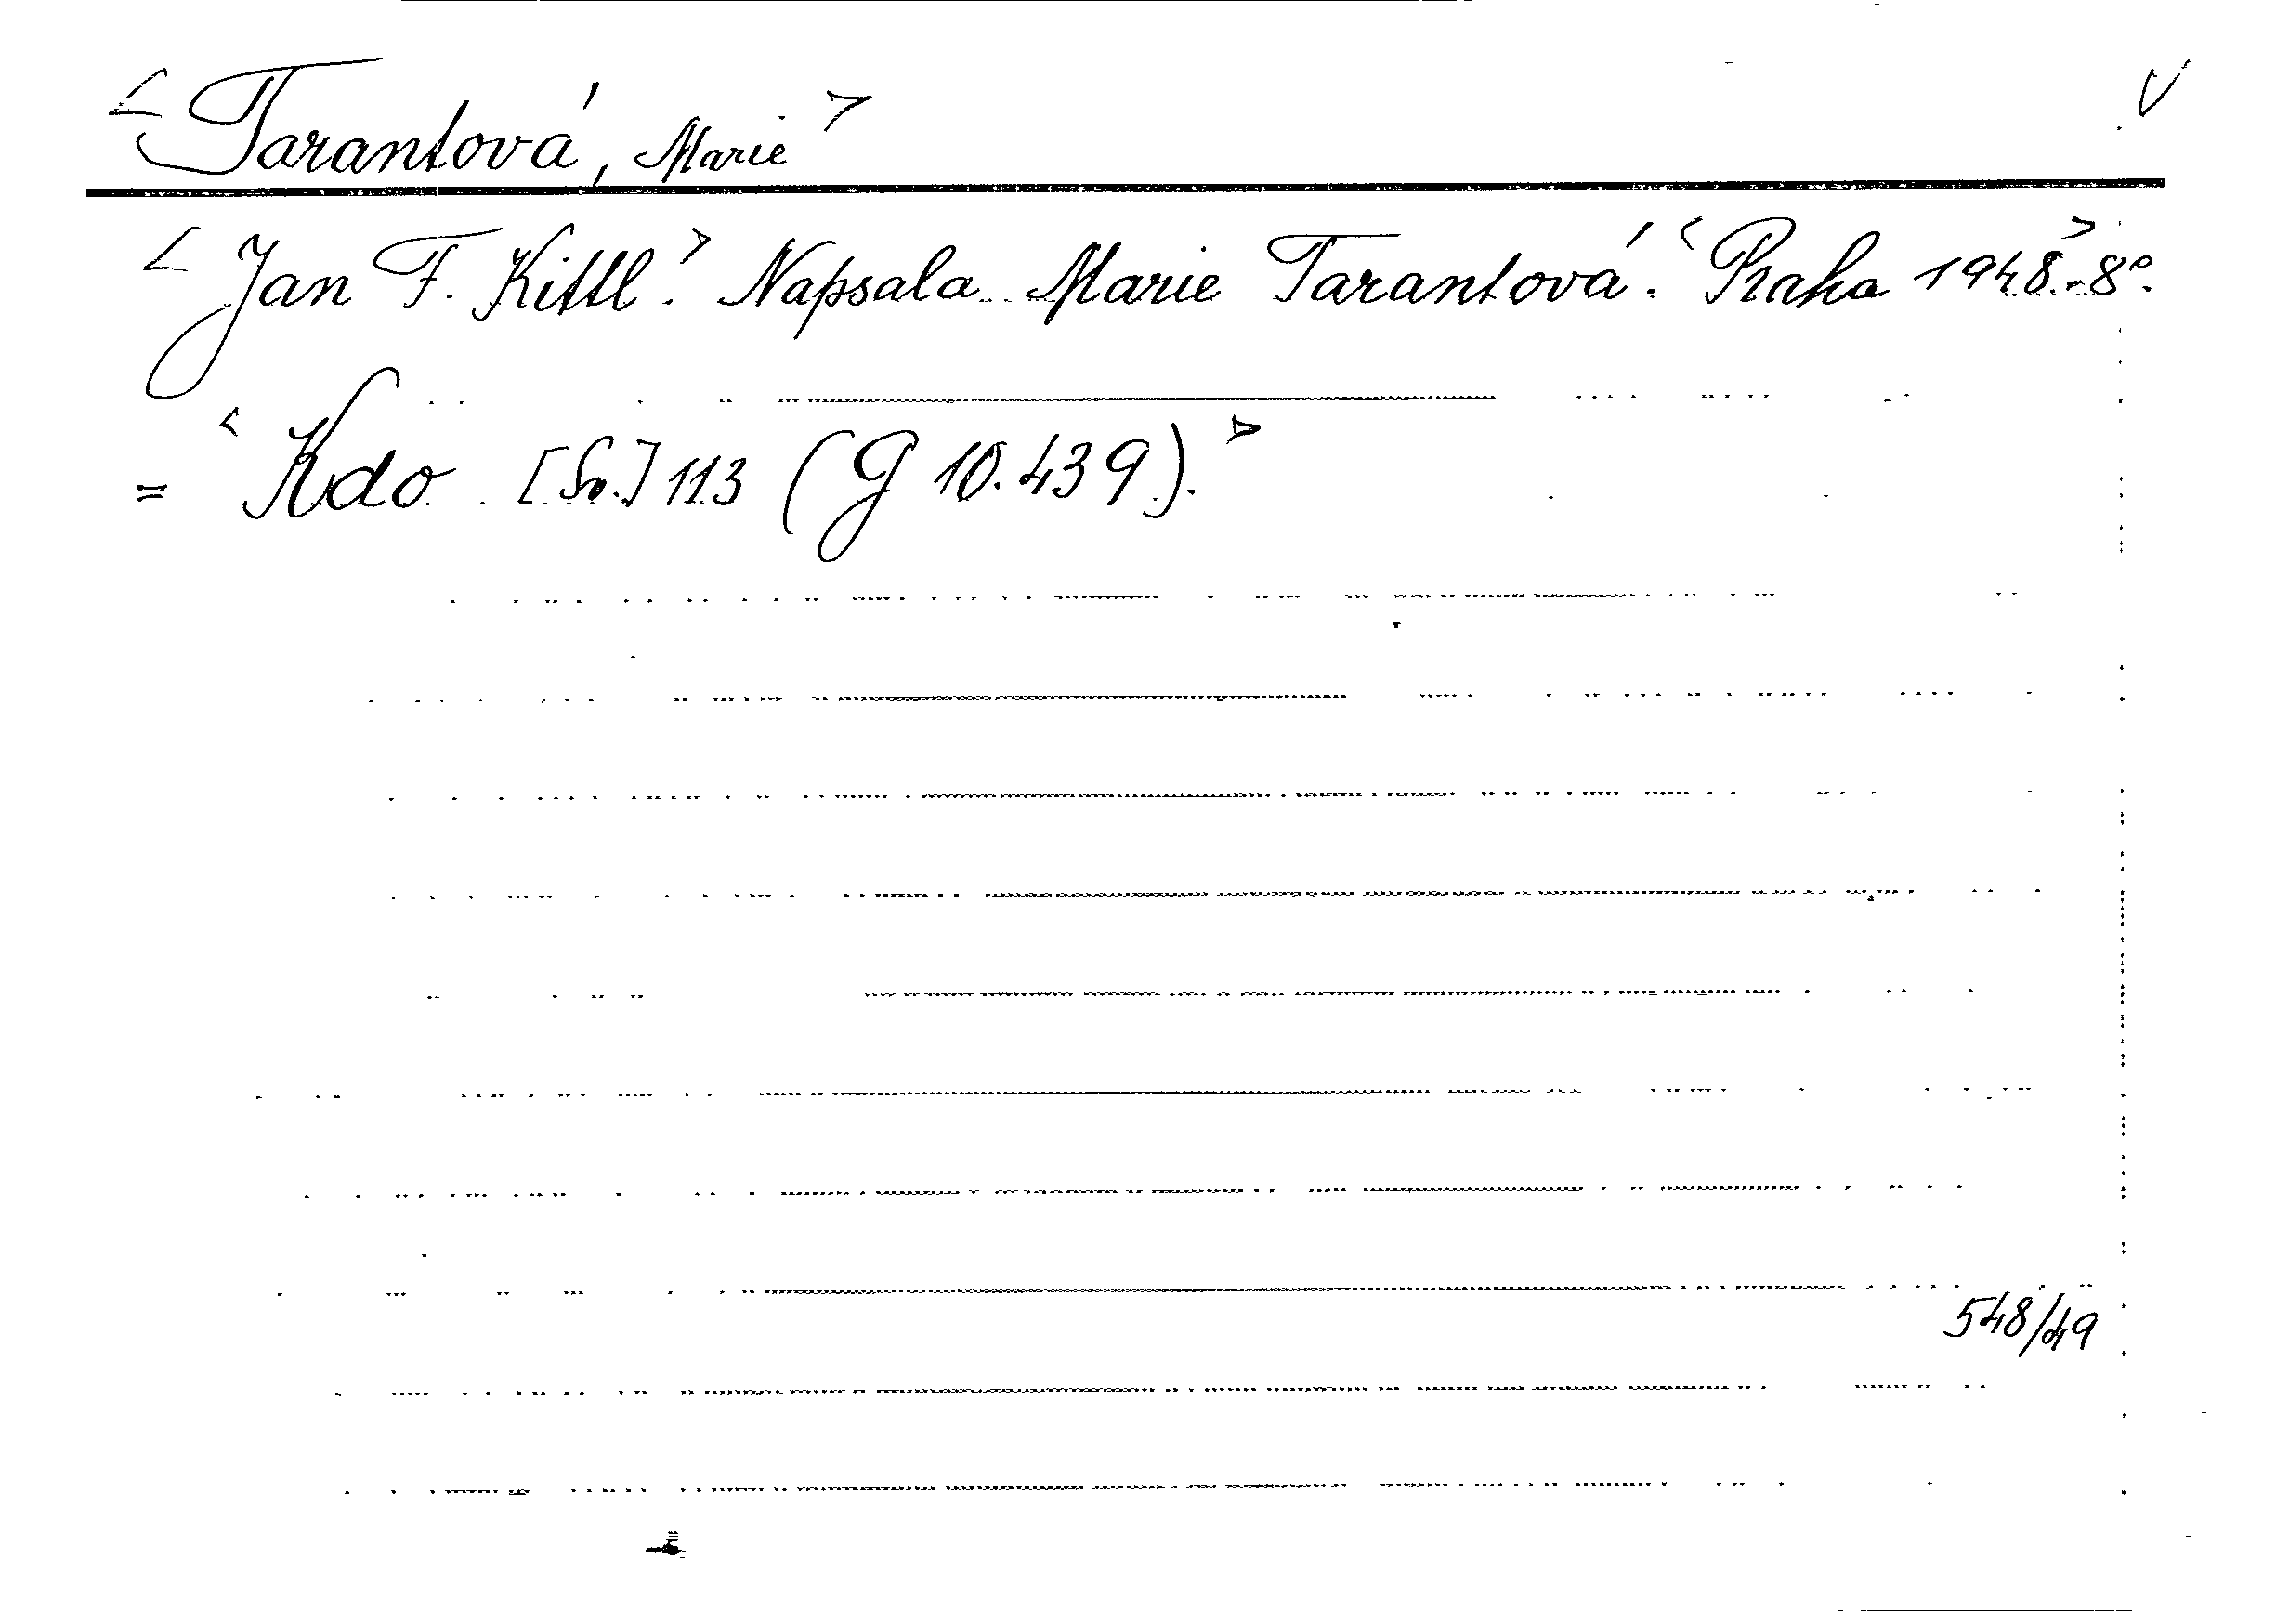 < Tarantová, Marie > V
< Jan F. Kittl. > Napsala Marie Tarantová. < Praha 1948. > - 8°.
= < Kdo [Sv.] 113 (G 10.439). >
548/49